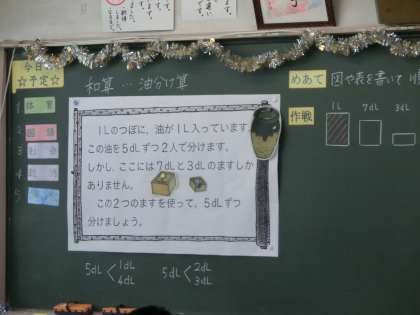 今日の
☆予定☆
1 体育
2 国語
3 社会
4
5
和算…油分け算
1Lのつぼに、油が1L入っています。
この油を5dLずつ2人で分けます。
しかし、ここには7dLと3dLのますしか
ありません。
この2つのますを使って、5dLずつ
分けましょう。
5dL 1dL
4dL
5dL 2dL
3dL
めあて 図や表を書いて
作戦
1L 7dL 3dL